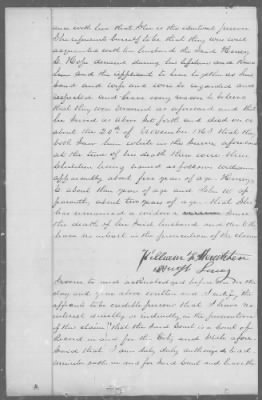 ance with her that she is the identical person
she represents herself to be that they were well
acquainted with her husband the said Henry
C. Hop deceased during his lifetime and knew
him and this applicant to live together as hus
band and wife and were so regarded and
reputed and have every reason to believe
that they were married as aforesaid and that
he served as above set forth and died on or
about the 20th of November 186 that they
both saw him while in the service aforesaid
at the time of his death there were three
children living named as follows William
apparently about five years of age Henry
C about three years of age and John W. ap
parently about two years of age that she
has remained a widow since
the death of her said husband and that they
have no interest in the prosecution of this claim
William
Sworn to and subscribed before me the
day and year above written and I certify the
affiants to be credible persons that I have no
interest directly or indirectly in the prosecution
of this claim that the said Court is a Court of
Record in and for the City and State afore
said that I am duly authorized to ad
minister oaths in and for said Court and have the